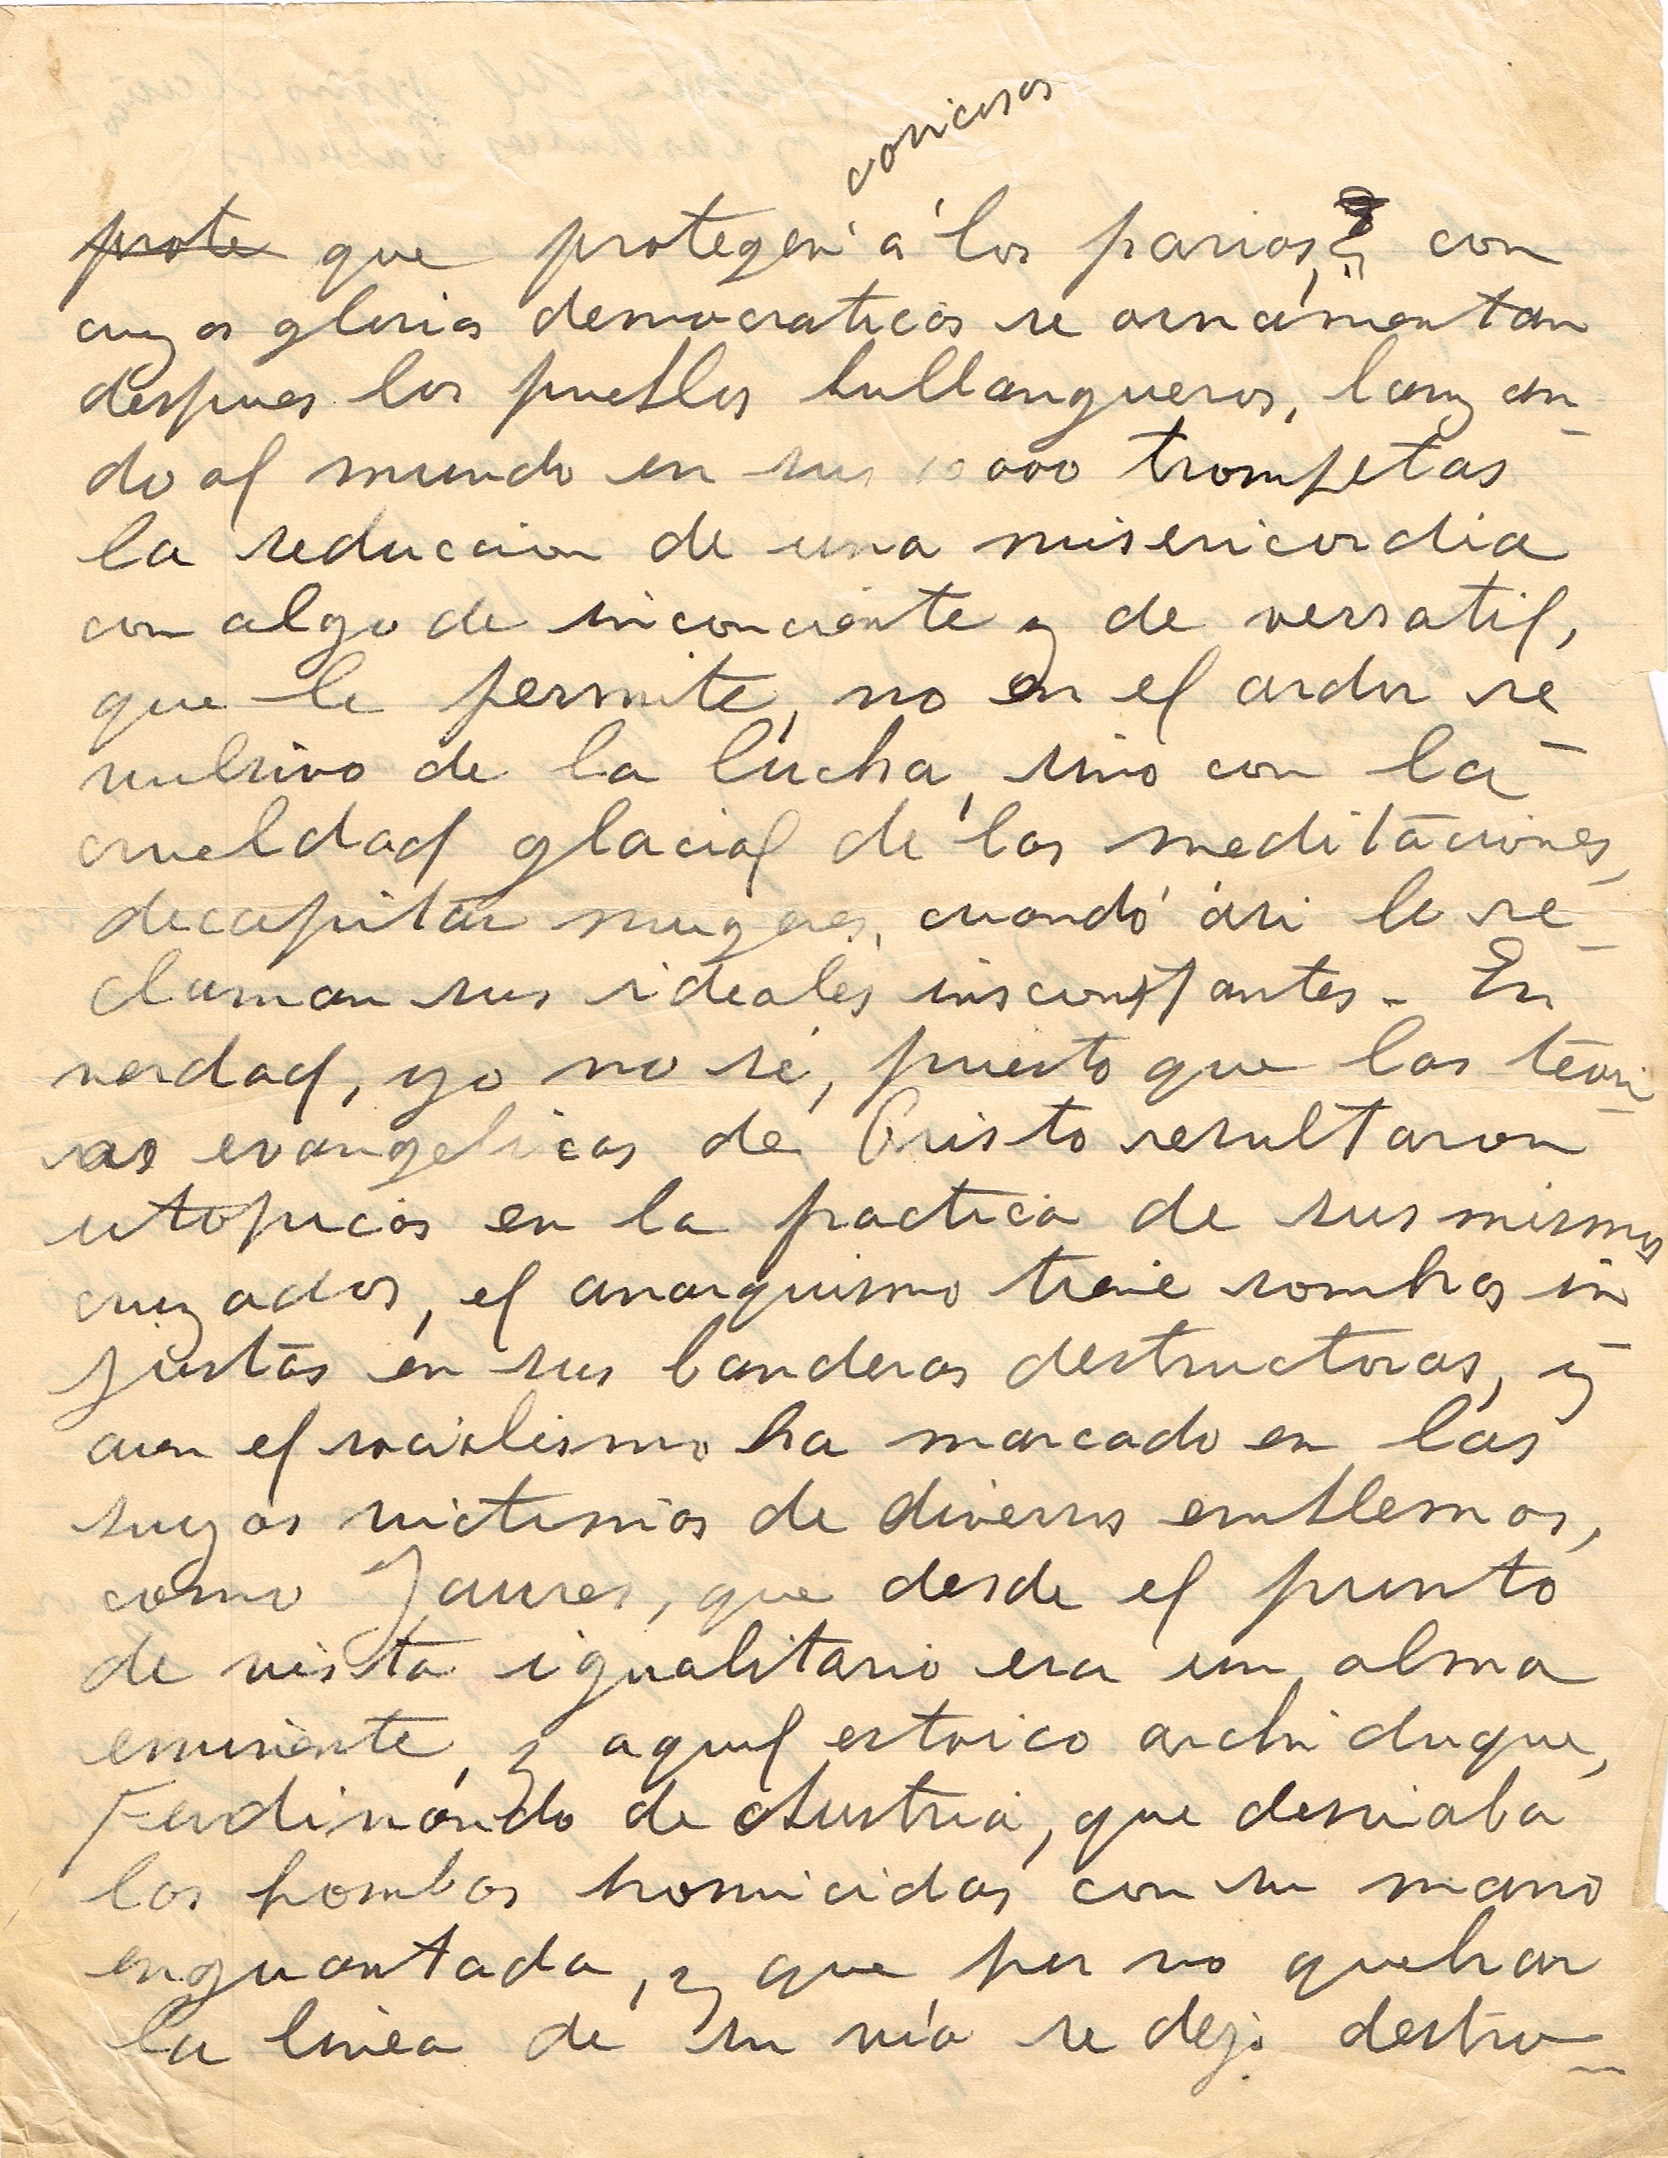 prote que protegen á los parias, con
cuyas glorias democraticas se ornamentan
despues los pueblos bullangueros, lanzan-
do al mundo en sus 10000 trompetas
la seduccion de una misericordia
con algo de inconciente y de versatil,
que le permite, no en el ardor re-
vulsivo de la lucha, sino con la
crueldad glacial de las meditaciones,
decapitar mugeres, cuando asi le re-
claman sus ideales insconstantes - En
verdad, yo no sé, puesto que las teori-
as evangelicas de Cristo resultaron
utopicas en la practica de sus mismos
cruzados, el anarquismo tiene sombras in-
justas en sus banderas destructoras, y
aun el socialismo ha marcado en las
suyas victimas de diversos emblemas,
como Jaures, que desde el punto
de vista igualitario era un alma
eminente, y aquel estoico archiduque,
Ferdinando de Austria, que desviaba
las bombas homicidas con su mano
enguantada, y que por no quebrar
la linea de su vía se dejo destro-